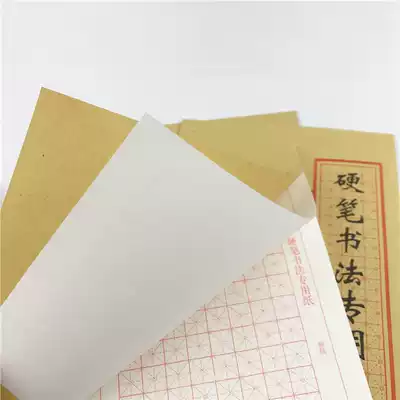 硬笔书法专用
硬笔书法专用纸